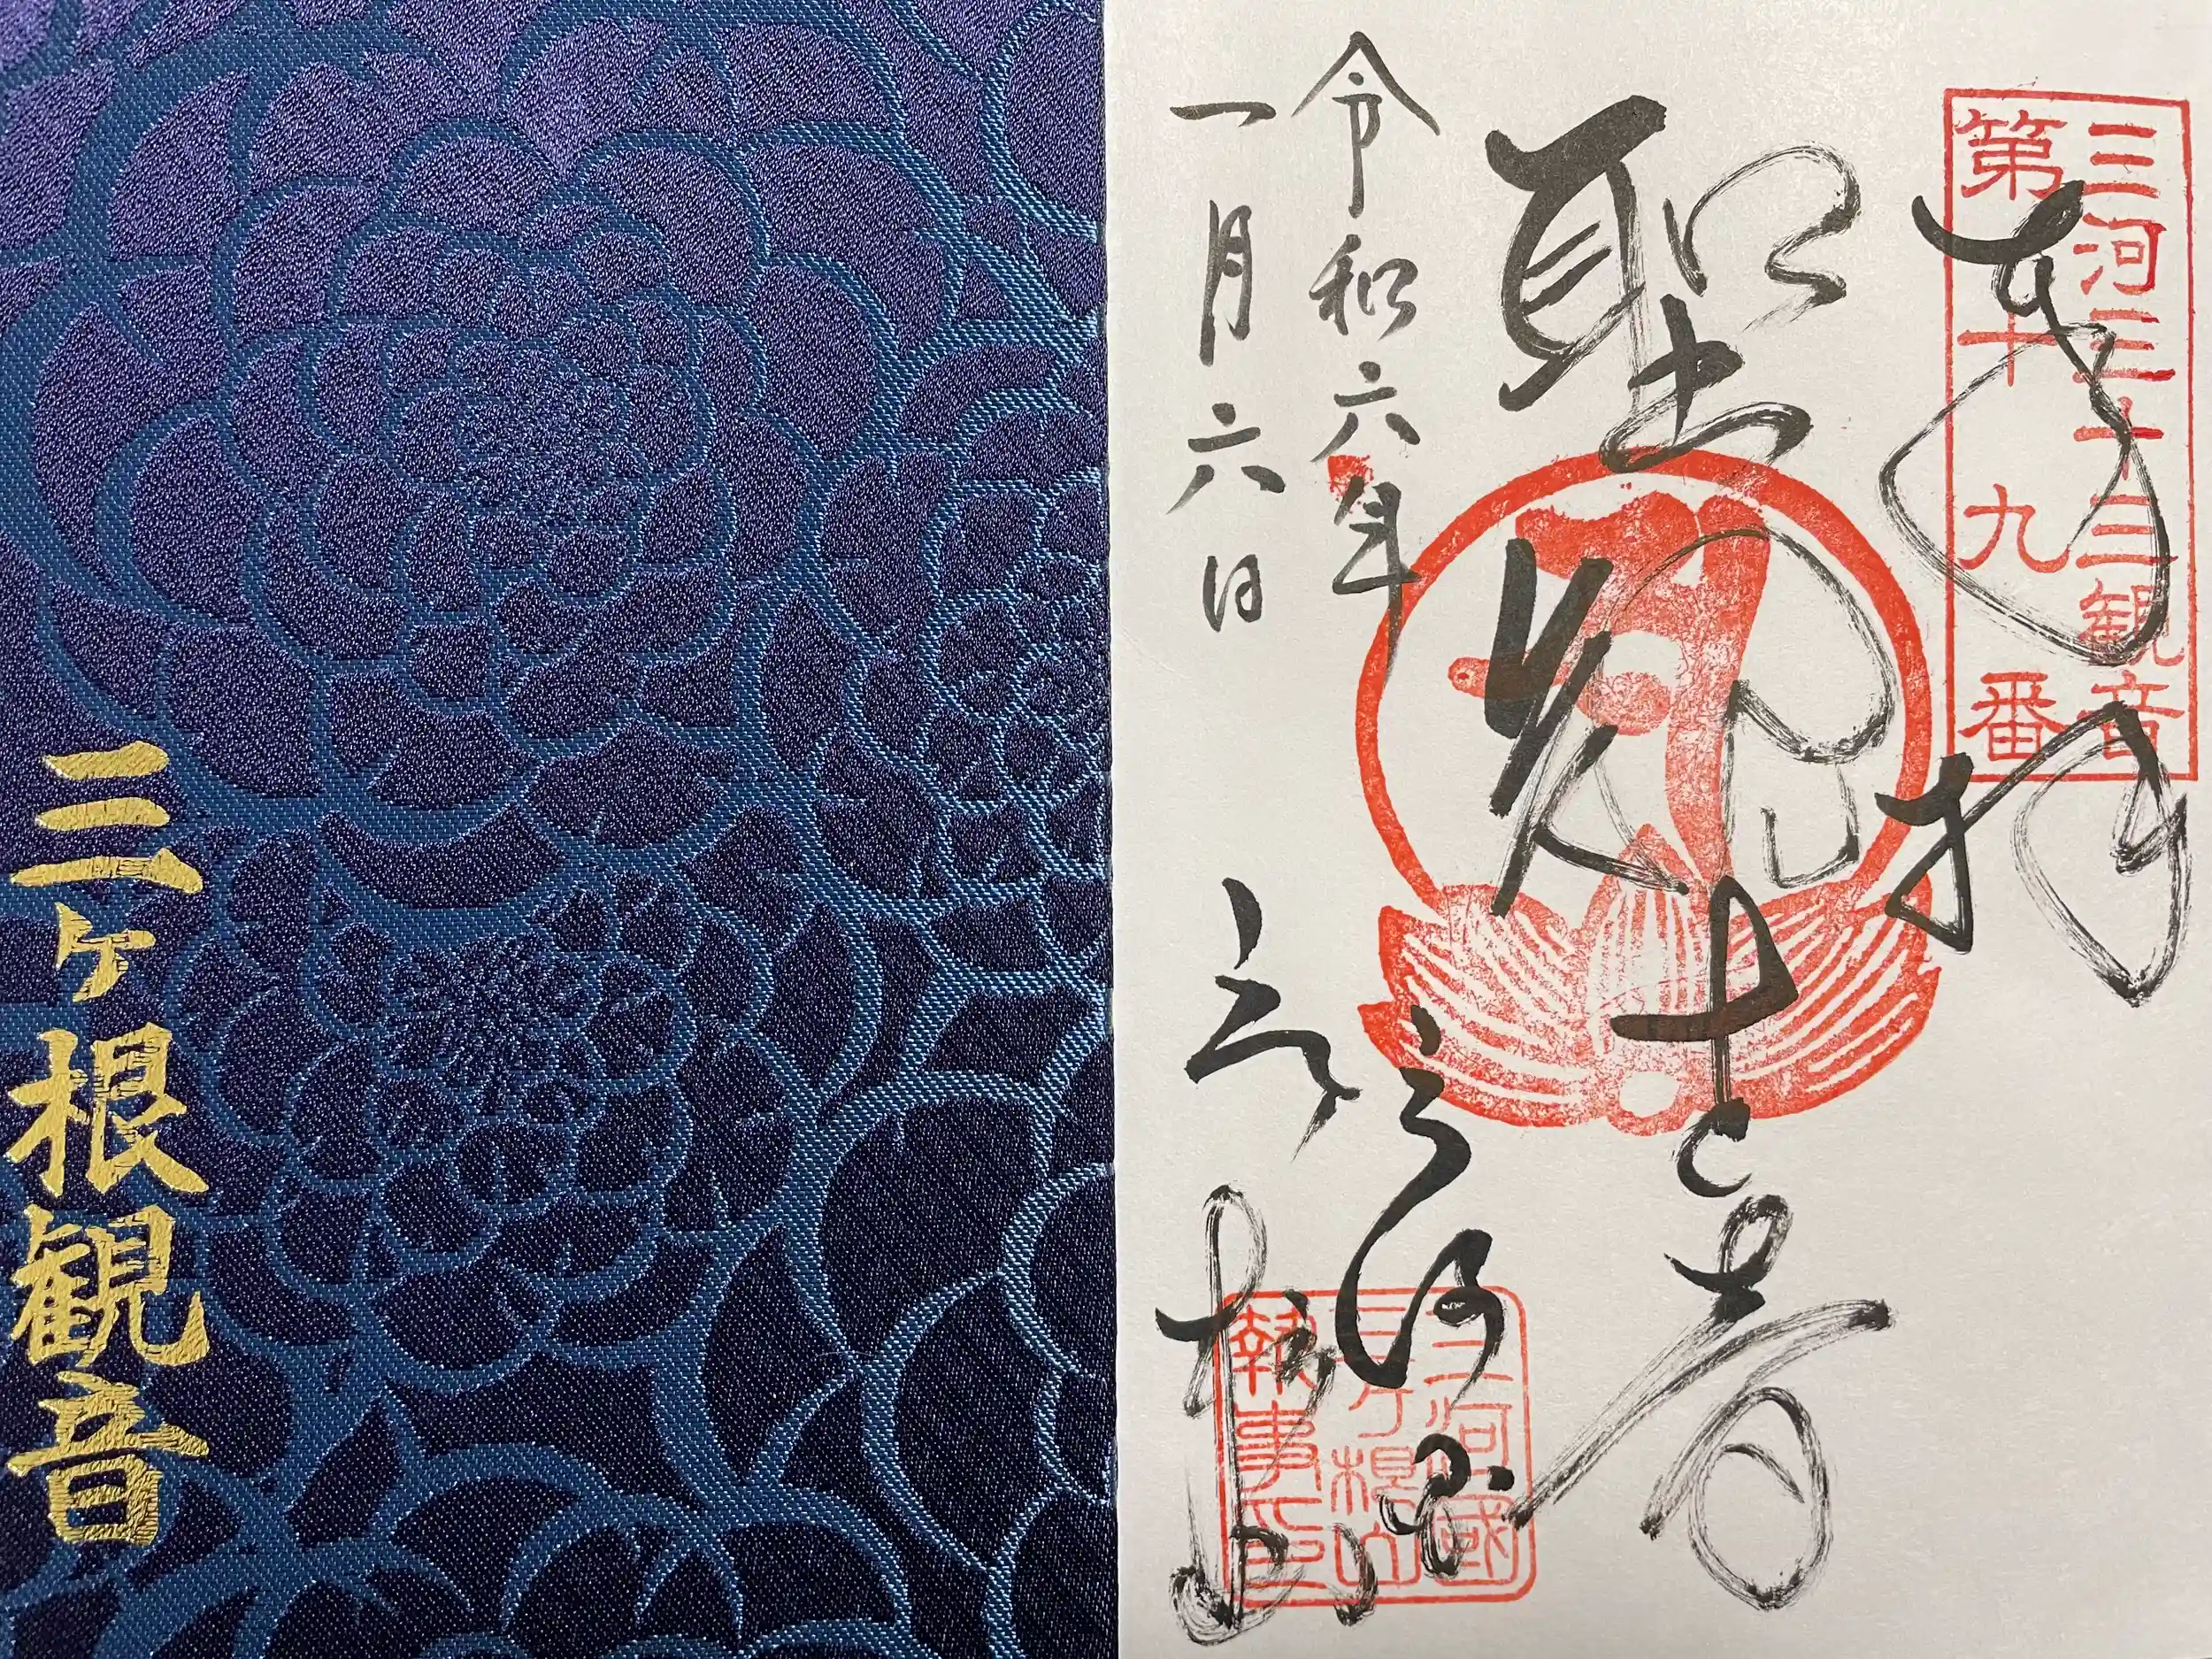 三ヶ根観音
三河三十三観音
第十九番
奉拝
聖観世音
三河国
三ヶ根山
令和六年
一月六日
三河國
三ヶ根山
執事之印